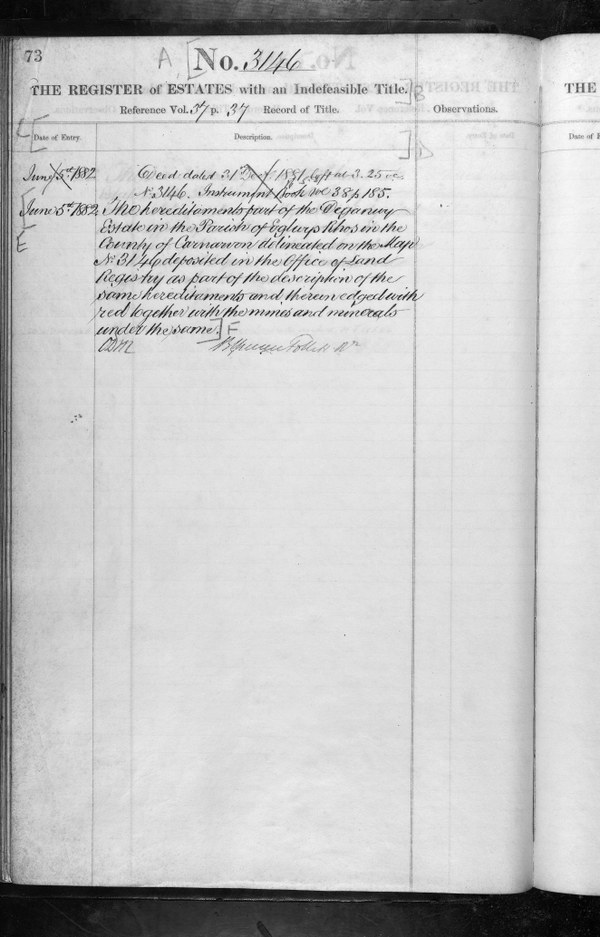 73
A [No. 3146
THE REGISTER of ESTATES with an Indefeasible Title. ] B
Reference Vol. 37 p. 37 Record of Title.
Observations.
THE
C [
Date of Entry.
Description.
] D
Date of E
June 5th 1882
Deed dated 31st Decr 1881 left at 3.25
No 3146. Instrument Book 38 p 185.
[ June 5th 1882
The hereditaments part of the Deganwy
Estate in the Parish of Eglwys Rhos in the
E
County of Carnarvon delineated on the Map
No 3146 deposited in the Office of Land
Registry as part of the description of the
same hereditaments and therein edged with
red together with the mines and minerals
under the same. ] F